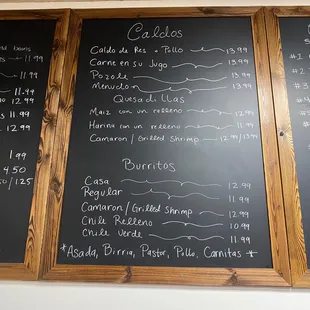 Caldos
Caldo de Res o Pollo 13.99
Carne en su Jugo 13.99
Pozole 13.99
Menudo 13.99
Quesadillas
Maiz con un relleno 11.99
Harina con un relleno 11.99
Camaron/Grilled Shrimp 12.99/13.99
Burritos
Casa 12.99
Regular 11.99
Camaron/Grilled Shrimp 12.99
Chile Relleno 10.99
Chile Verde 11.99
*Asada, Birria, Pastor, Pollo, Carnitas*
beans
11.99
11.99
12.99
11.99
12.99
1.99
4.50
50/125
#1
#2
#3
#4
#5